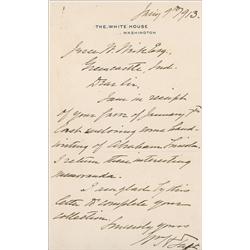 Jany 9th 1913.
THE WHITE HOUSE
WASHINGTON
Greencastle, Ind.
Dear Sir,
I am in receipt
of your favor of January 7th
last enclosing some hand-
writing of Abraham Lincoln.
I return these interesting
memoranda.
I am glad by this
letter to complete your
collection.
Sincerely yours
Wm H Taft